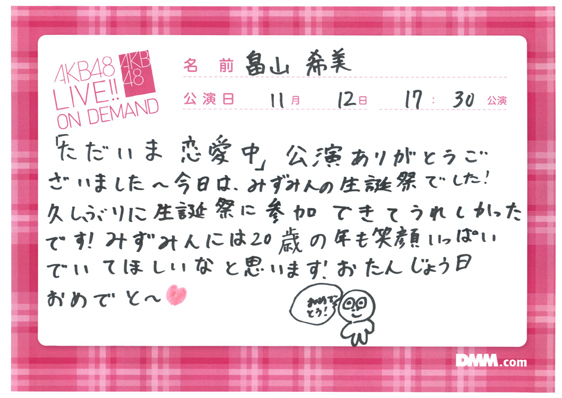 AKB48
LIVE!!
ON DEMAND
AKB
48
名前 畠山 希美
公演日 11月 12日 17:30公演
「ただいま 恋愛中」公演ありがとうご
ざいました〜今日は、みずみんの生誕祭でした!
久しぶりに生誕祭に参加できてうれしかった
です!みずみんには20歳の年も笑顔いっぱい
でいてほしいなと思います!おたんじょう日
おめでと〜
おめで
とう!
DMM.com